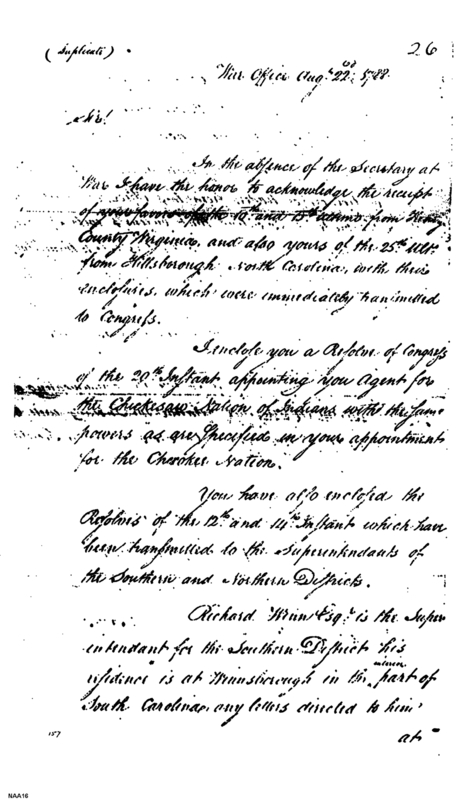 (Duplicate)
26
War Office Augt. 22d. 1788.
Sir!
In the absence of the Secretary at
War I have the honor to acknowledge the receipt
of your favors of the 10th and 15th ultimo from Henry
County Virginia, and also yours of the 25th Ulto.
from Hillsborough North Carolina, with their
enclosures, which were immediately transmitted
to Congress.
I enclose you a Resolve of Congress
of the 20th Instant appointing you Agent for
the Chickesaw Nation of Indians with the same
powers as are specified in your appointment
for the Cherokee Nation.
You have also enclosed the
Resolves of the 12th and 14th Instant which have
been transmitted to the Superintendants of
the Southern and Northern Districts.
Richard Winn Esqr. is the Super
intendant for the Southern District his
residence is at Winnsborough in the
part of
South Carolina, any letters directed to him
at
157
NAA16